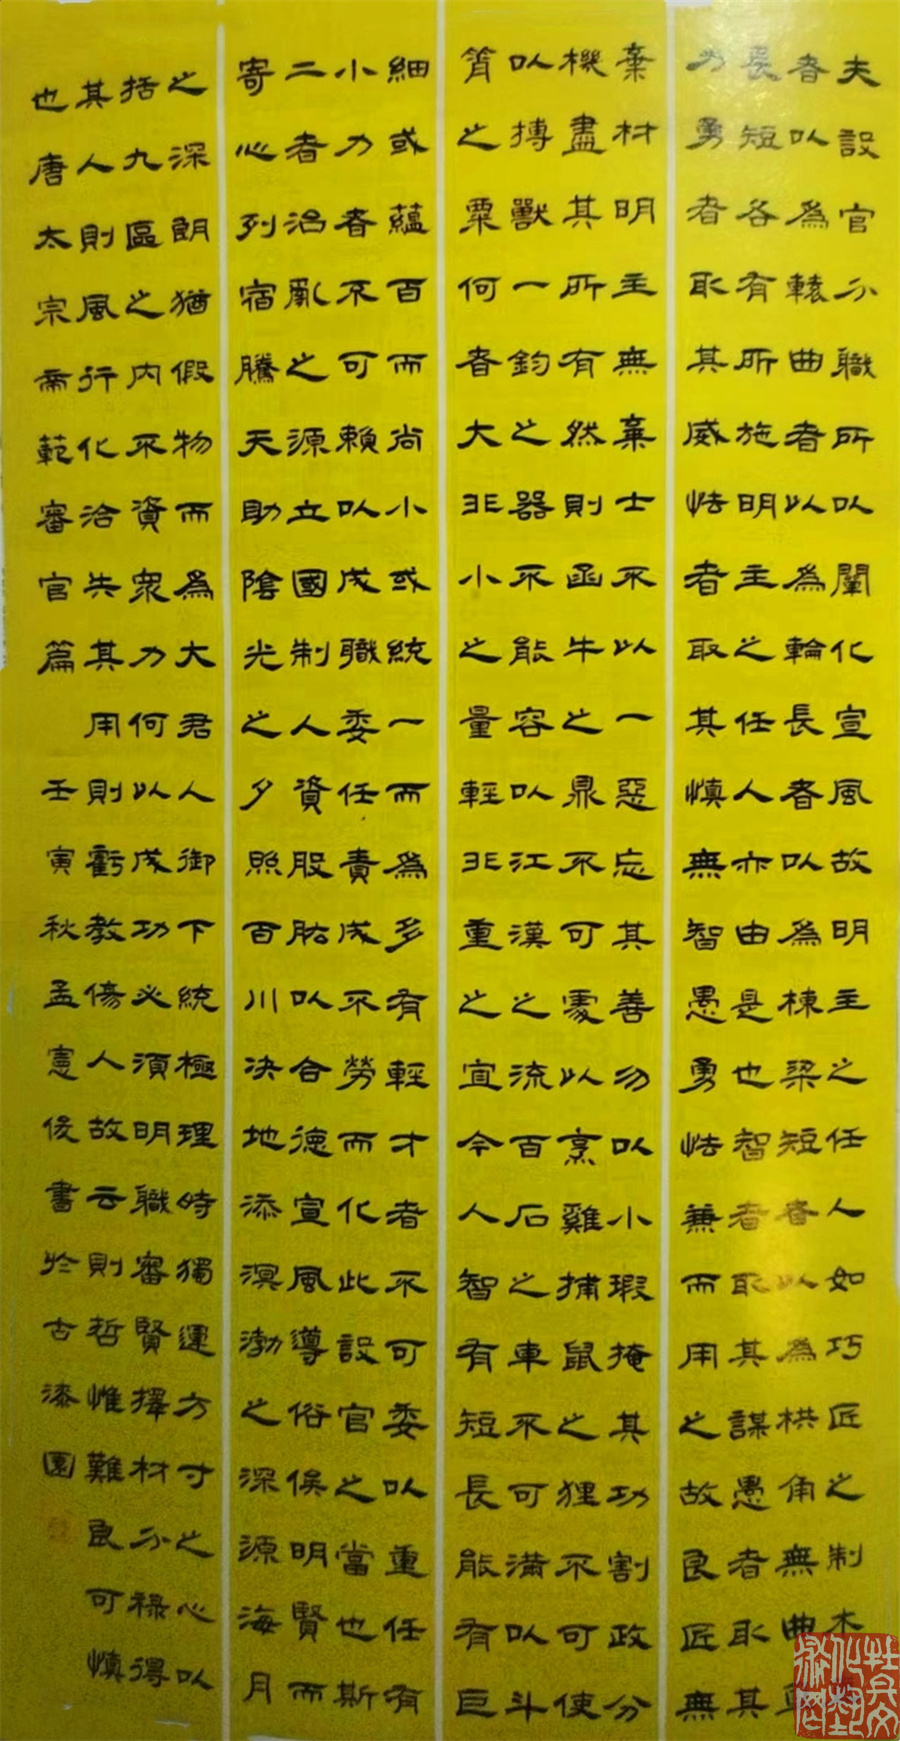 夫設官分職所以闡化宣風故明主之任人如巧匠之制木
者以為轅曲者以為輪長者以為棟梁短者以為栱角無曲直
長短各有所施明主之任人亦由是也智者取其謀愚者取其
力勇者取其威怯者取其慎無智愚勇怯兼而用之故良匠無
棄材明主無棄士不以一惡忘其善勿以小瑕掩其功割政分
機盡其所有然則函牛之鼎不可處以烹雞捕鼠之狸不可使
以搏獸一鈞之器不能容以江漢之流百石之車不可滿以斗
筲之粟何者大非小之量輕非重之宜今人智有短長能有巨
細或蘊百而尚小或統一而為多有輕才者不可委以重任有
小力者不可賴以成職委任責成不勞而化此設官之當也斯
二者治亂之源立國制人資股肱以合德宣風導俗俟明賢而
寄心列宿騰天助陰光之夕照百川決地添溟渤之深源海月
之深朗猶假物而為大君人御下統極理時獨運方寸之心以
括九區之內不資眾力何以成功必須明職審賢擇材分祿得
其人則風行化洽失其用則虧教傷人故云則哲惟難良可慎
也唐太宗帝範審官篇 壬寅秋孟憲俊書於古漆園